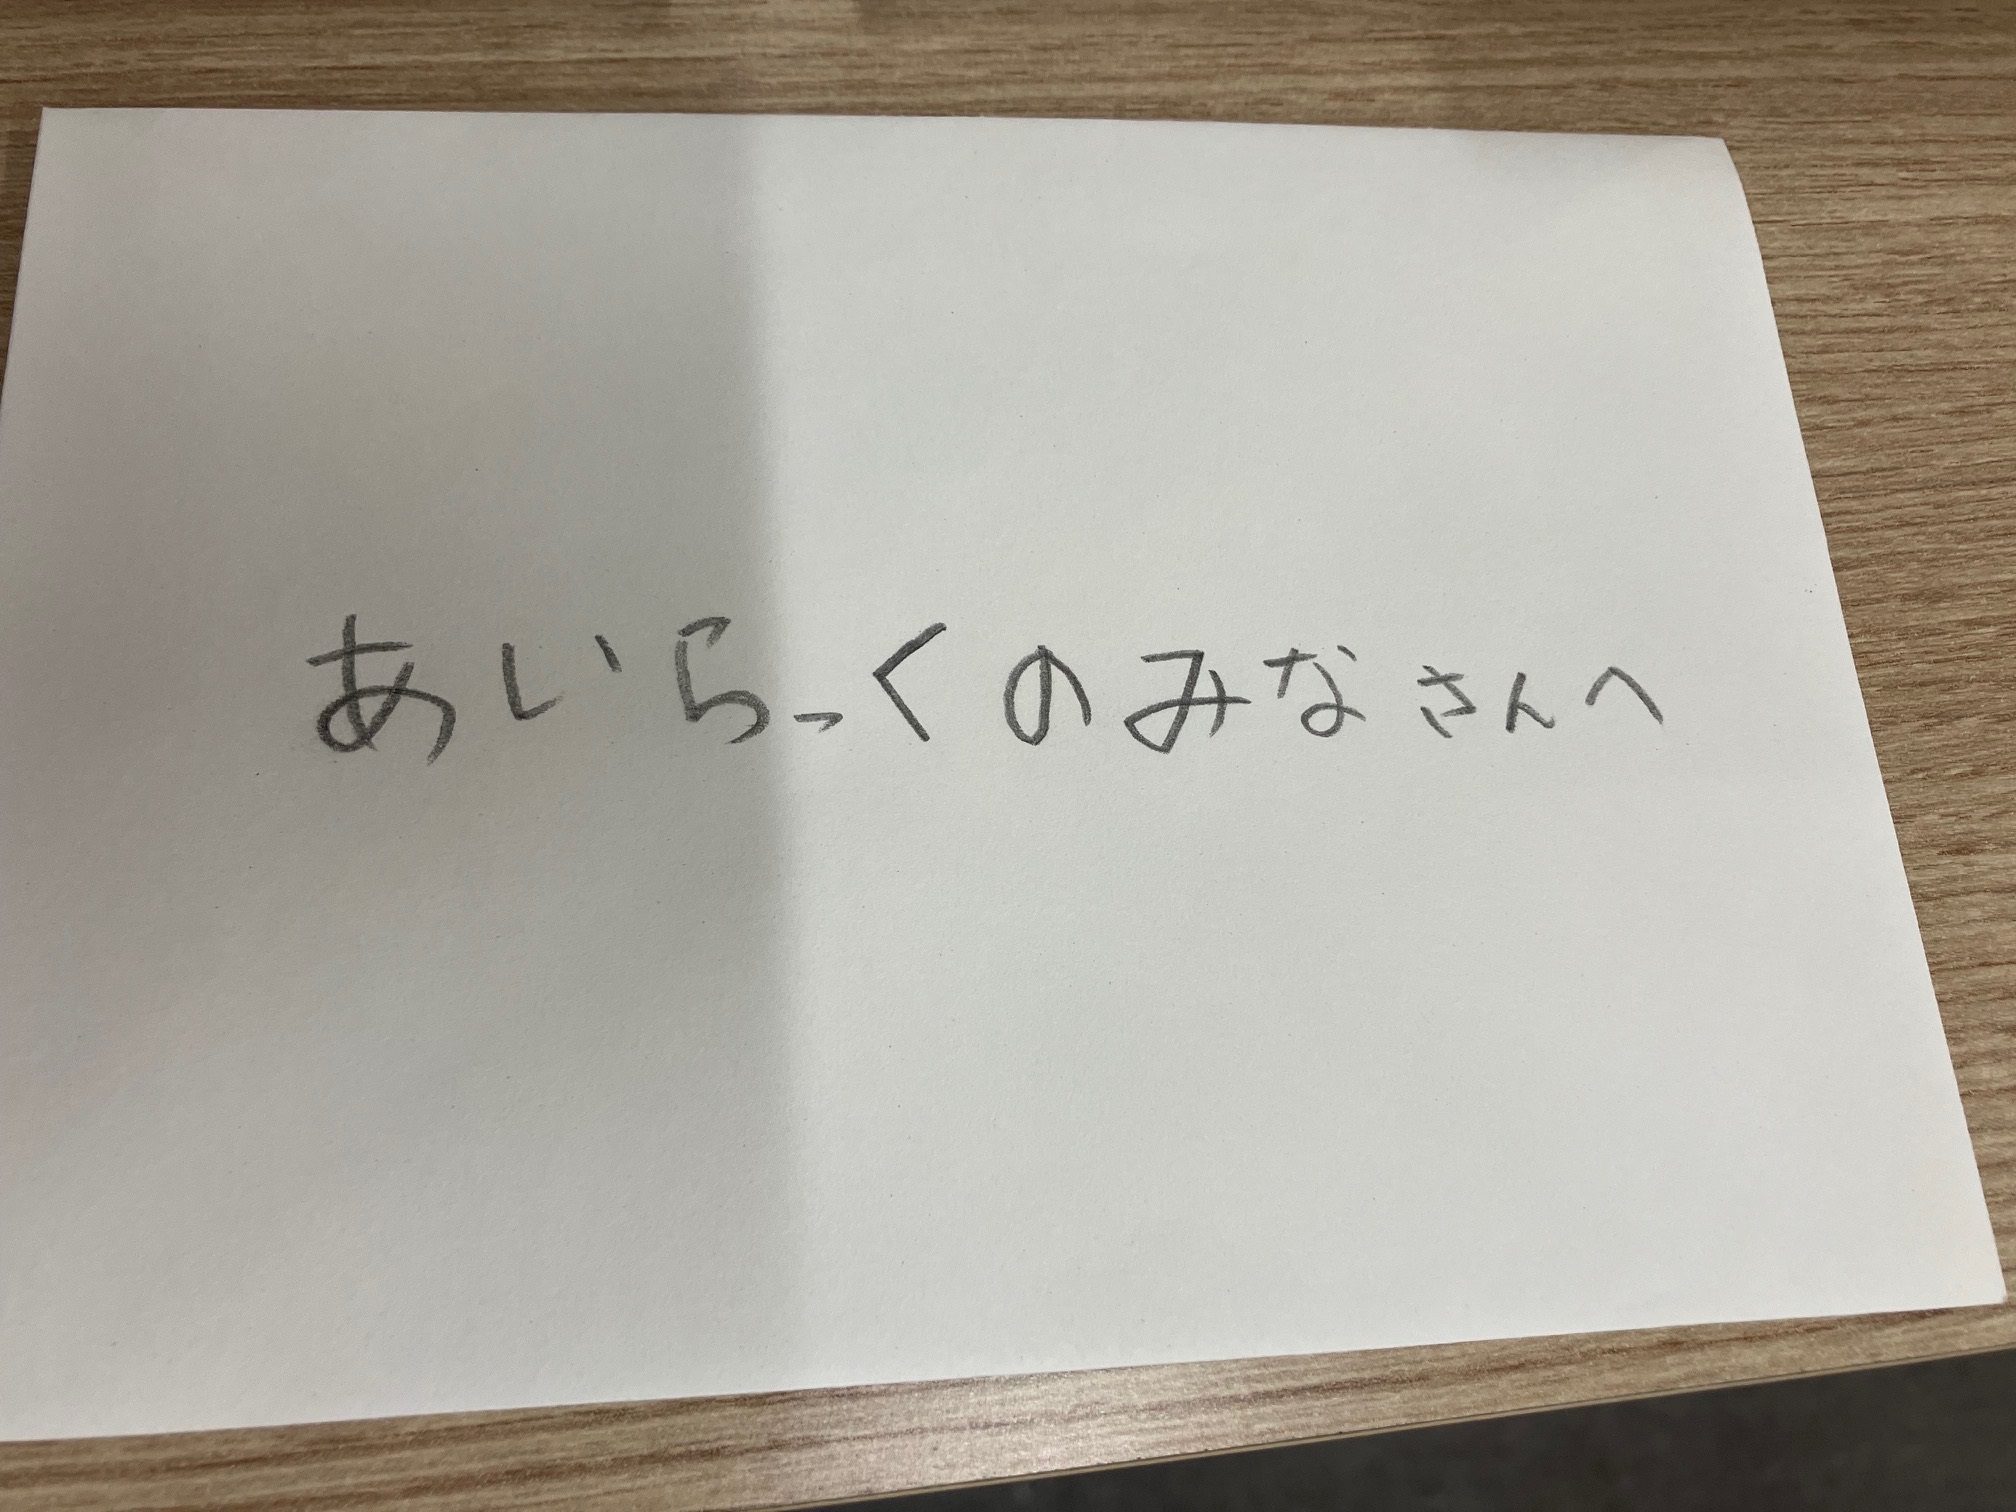 あいらっくのみなさんへ